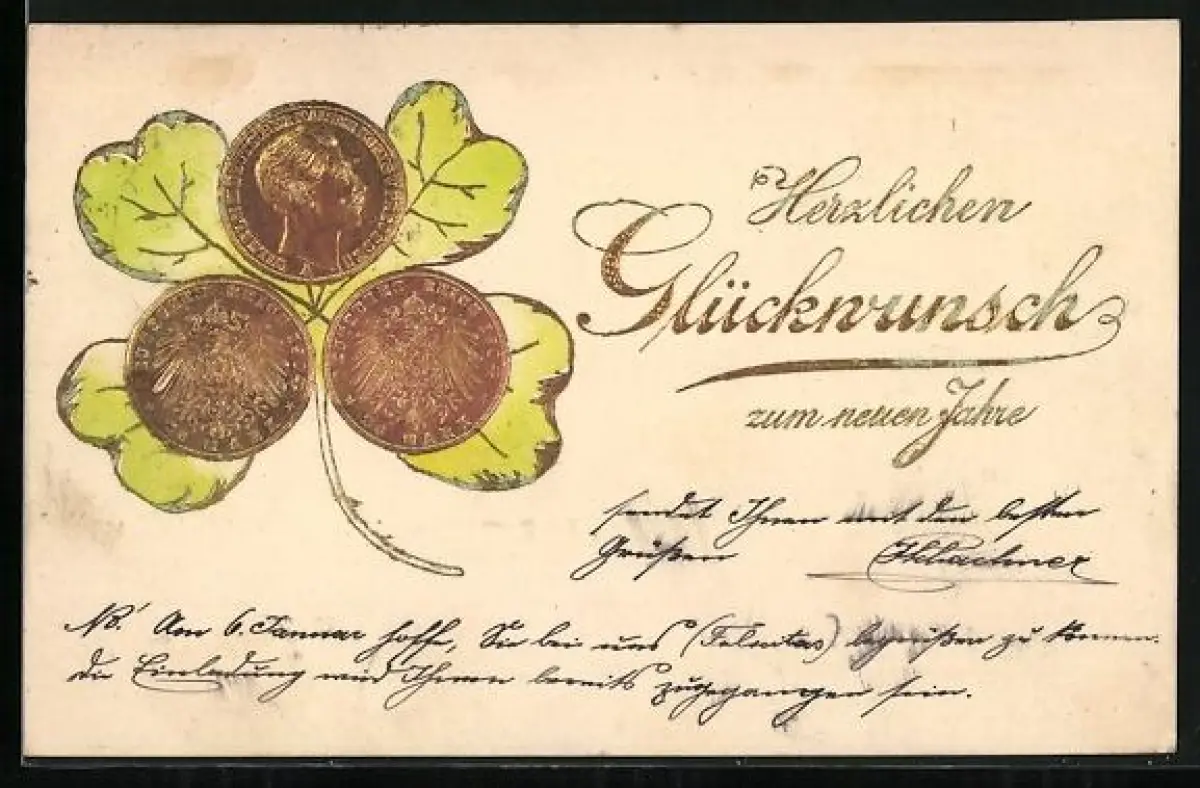 Herzlichen
Glückwunsch
zum neuen Jahre
sendet Ihnen mit den besten
Grüßen
NB! Am 6. Januar hoffe, Sie bei uns begrüßen zu können.
die Einladung wird Ihnen bereits zugegangen sein.